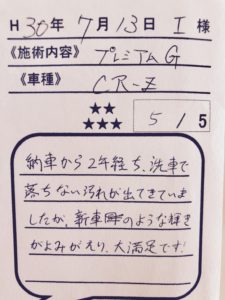 H 30年 7月13日 I 様
《施術内容》 プレミアムG
《車種》 CR-Z
★★
★★★ 5/5
納車から2年経ち、洗車で
落ちない汚れが出てきていま
したが、新車のような輝き
がよみがえり、大満足です!